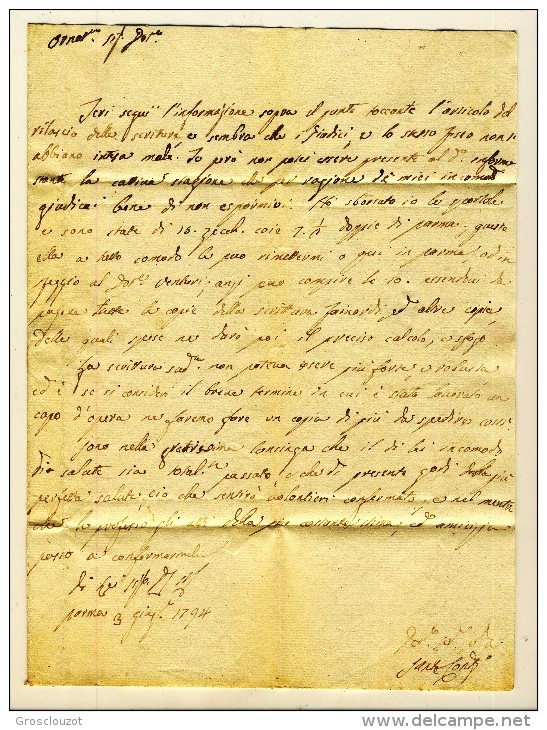 Ornat.mo Sig. Dot.e
Jeri seguì l'informazione sopra il punto toccante l'articolo del
rilascio della scrittura e sembra che i Giudici, e lo stesso fisco non l'
abbiano intesa mala. Io però non potei essere presente al d.o inform
stante la cattiva stagione che per cagione di miei incomodi
giudicai bene di non espormivi. Ho sborsato io le sportule
e sono state di 16. zecch. cioè 7. ½ doppie di parma, questo
ella a tutto comodo le può rimettermi o qui in parma, od in
reggio al Dot.e Venturi, anzi può compire le 10. essendovi da
pagare tutte le copie della scrittura Fainardi, ed altre copie
delle quali spese ne darò poi il preciso calcolo, e sfogo
La scrittura sud.a non poteva essere più forte e robusta
ed è se si consideri il breve termine in cui è stata lavorata un
capo d'opera ne faremo fare un copia di più da spedire costì
Sono nella gratissima lusinga che il di lei incomodo
di salute sia total.te passato, e che di presente goda della più
perfetta salute, ciò che sentirò volontieri confermato, e nel mentre
che le professo gli atti della più costante stima, ed amicizia
passo a confermarmele
Di Lei
parma 3 giug.o 1794
Groscloùzot
www.delcampe.net